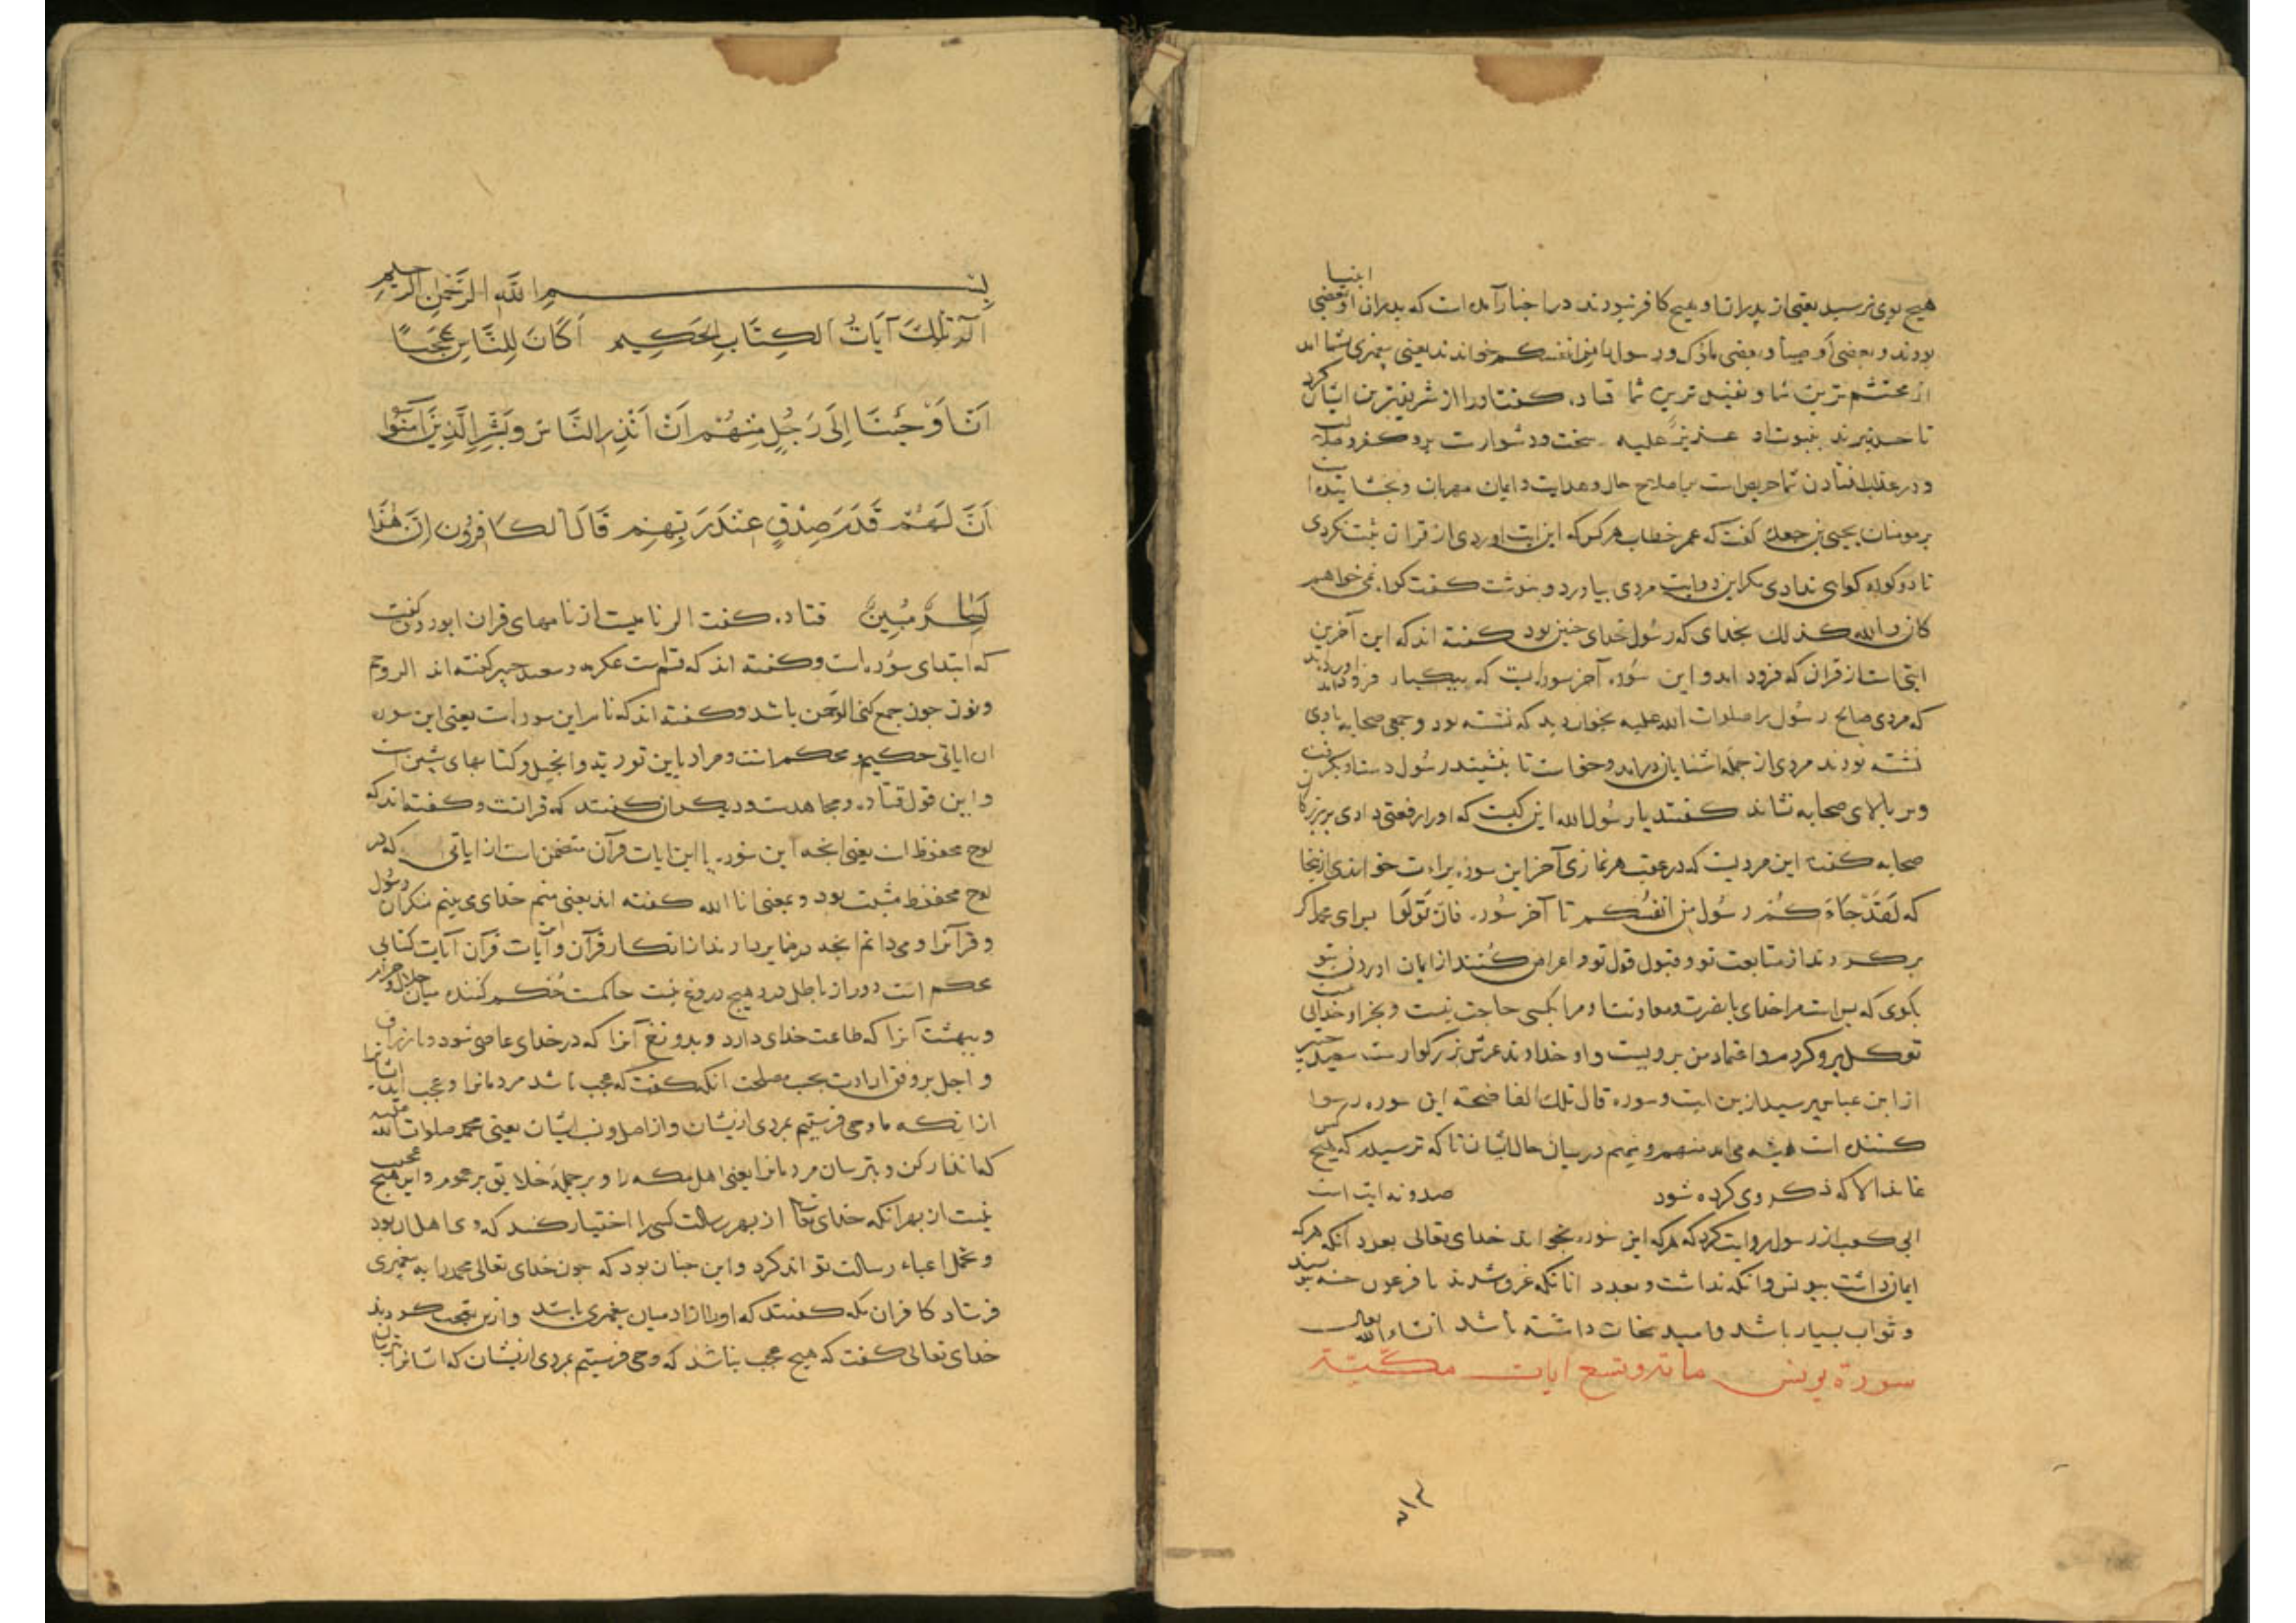 هیچ بوی نرسید یعنی از پدران او هیچ کافر نبودند در اخبار آمده است که پدران او بعضی انبیا
بودند و بعضی اوصیا و بعضی ملوک و رسول من انفسکم خواندند یعنی پیغمبری بشما آمد
از محتشم ترین شما و نفیس ترین شما قتاده کفت او را از شریفترین ایشان کرد
تا حسد نبرند بنبوت او عزیز علیه سخت و دشوارست برو کفر
و در عذاب افتادن شما حریص است بر اصلاح حال و هدایت و ایمان مهربان و بخشاینده است
بر مومنان یحیی بن جعده کفت که عمر خطاب هر کس که این ایت اوردی از قران ثبت نکردی
تا دو کواه کواهی ندادی مکر این دو ایت مردی بیاورد و بنوشت کفت کواه نمی خواهم
کان والله کذلک بخدای که رسول خدای چنین بود کفته اند که این آخرین
ایتی است از قران که فرود امد و این سوره آخر سوره ایست که بیکبار فرود آمد اورده اند
که مردی صالح رسول را صلوات الله علیه بخواب دید که نشسته بود و جمعی صحابه با وی
نشسته بودند مردی از جمله اشنایان درامد و خواست تا بنشیند رسول دست او بکرفت
و بر بالای صحابه نشاند کفتند یا رسول الله این کیست که او را رفعتی دادی بر بزرکان
صحابه کفت این مردیست که در عقب هر نمازی آخر این سوره براءت خواندی از اینجا
که لقد جاءکم رسول من انفسکم تا آخر سوره فان تولوا برای محمد اکر
برکردند از متابعت تو و قبول قول تو و اعراض کنند از ایمان اوردن بتو
بکوی که بس است مرا خدای با نصرت و معاونت او مرا بکسی حاجت نیست و بجز او خدایی
توکل برو کردم و اعتماد من برویست و او خداوند عرش بزرکوارست سعید جبیر
از ابن عباس پرسید از این سوره قال تلک الفاضحة این سوره رسوا
کننده است همیشه می امد منهم و منهم در بیان حال ایشان تا که ترسیدم که هیچ کس
نماند الا که ذکر وی کرده شود صد و نه ایت است
ابی کعب از رسول روایت کرد که هر که این سوره بخواند خدای تعالی بعدد آنکه هر که
ایمان داشت بیونس و انکه نداشت و بعدد انانکه غرق شدند با فرعون حسنه
و ثواب بسیار باشد و امید نجات داشته باشد انشاء الله تعالی
سورة یونس مائة و تسع ایات مکیّة
بسم الله الرحمن الرحیم
الر تلک آیات الکتاب الحکیم أکان للناس عجبا
ان اوحینا الی رجل منهم ان انذر الناس و بشر الذین آمنوا
ان لهم قدم صدق عند ربهم قال الکافرون ان هذا
لساحر مبین قتاده کفت الر نامیست از نامهای قران ابو روق کفت
که ابتدای سوره است و کفته اند که قسم است عکرمه و سعید جبیر کفته اند الر و حم
و نون چون جمع کنی الرحمن باشد و کفته اند که نام این سوره است یعنی این سوره
ان ایاتی حکیم و محکم است و مراد باین توریة و انجیل و کتابهای پیشین است
و این قول قتاده و مجاهدست و دیکران کفتند که قرانست و کفته اند که
لوح محفوظ است یعنی انچه این سوره یا این ایات قرآن متضمن است از ایاتی که در
لوح محفوظ مثبت بود و بمعنی انا الله کفته اند یعنی منم خدای می بینم منکران رسول
و قرآنرا و می دانم انچه در ضمایر دارند از انکار قرآن و آیات قرآن آیات کتابی
محکم است دور از باطل درو هیچ دروغ نیست حاکمست حکم کننده میان حلال و حرام
و ببهشت آنرا که طاعت خدای دارد و بدوزخ آنرا که در خدای عاصی شود
و اجل بر وفق ارادت بحسب مصلحت انکه کفت که عجب باشد مردمانرا و عجب
از انکه ما وحی فرستیم بمردی ازیشان و از اصل و نسب ایشان یعنی محمد صلوات الله علیه
که انذار کن و بترسان مردمانرا یعنی اهل مکه را و بر جمله خلایق بر عموم و این هیچ عجب
نیست از بهر آنکه خدای تعالی از بهر رسالت کسی را اختیار کند که وی اهل ان بود
و تحمل اعباء رسالت تواند کرد و این چنان بود که چون خدای تعالی محمد را به پیغمبری
فرستاد کافران مکه کفتند که او را از ادمیان پیغمبری باشد و ازین تعجب کردند
خدای تعالی کفت که هیچ عجب نباشد که وحی فرستیم بمردی ازیشان که ایشانرا